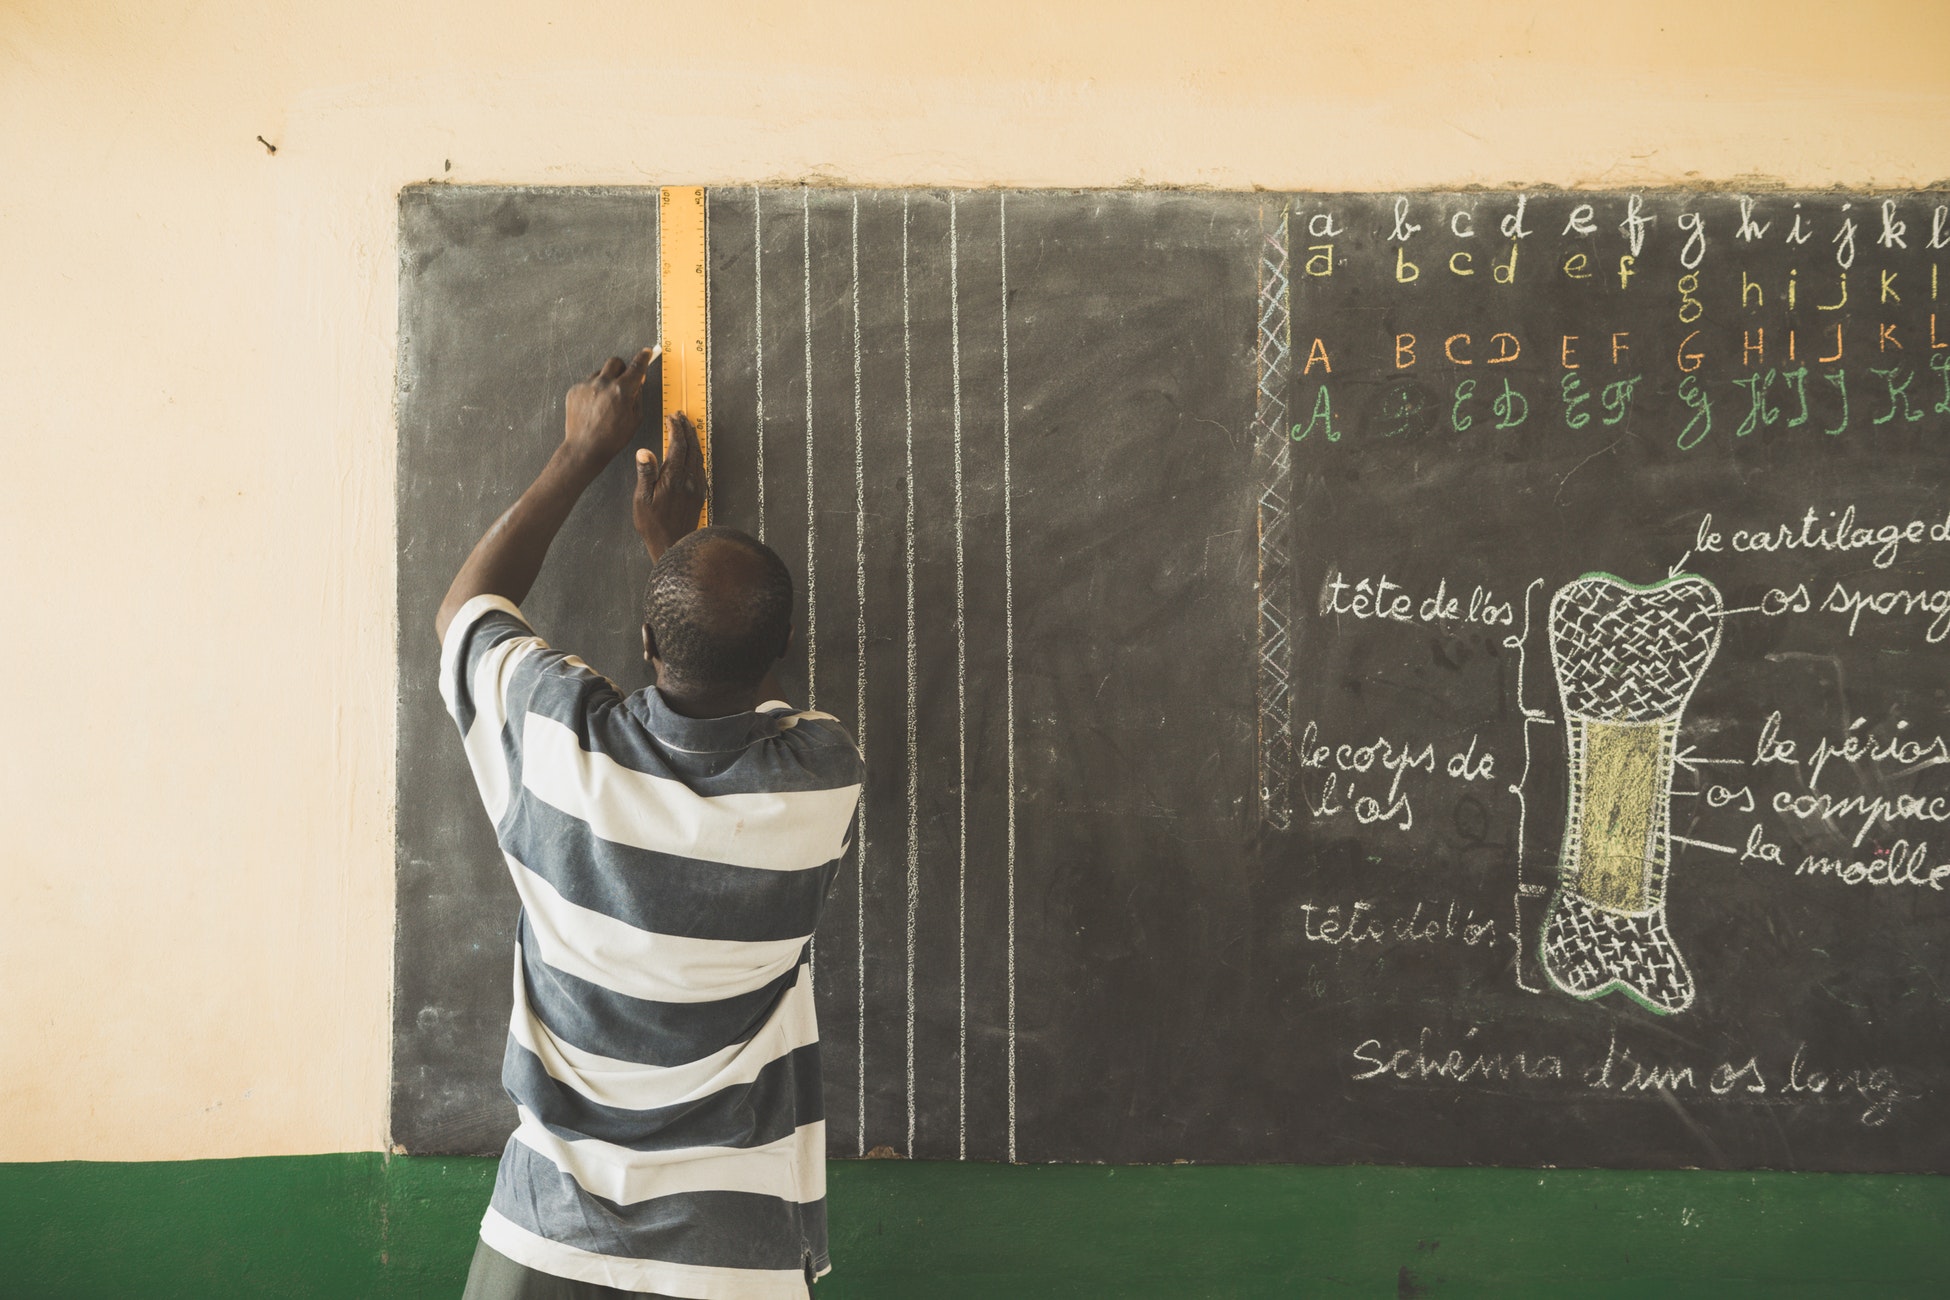 a b c d e f g h i j k l
a b c d e f g h i j k l
A B C D E F G H I J K L
A E D E F G H I J K L
le cartilage d
tête de l'os
os spong
le périos
le corps de
l'os
os compac
la moëlle
tête de l'os
Schéma d'un os long